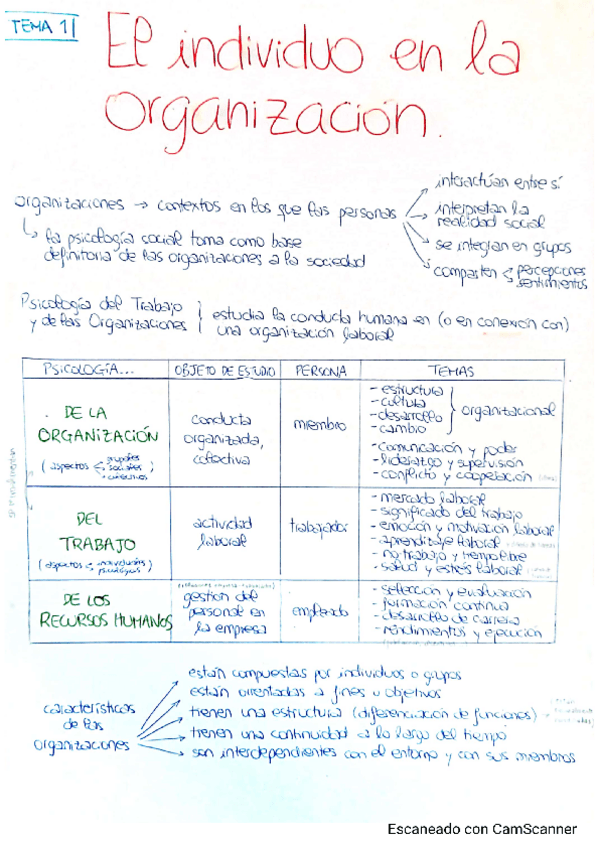 TEMA 1
El individuo en la
organización.
organizaciones → contextos en los que las personas
interactúan entre sí
interpretan la
realidad social
se integran en grupos
comparten < percepciones
sentimientos
↳ la psicología social toma como base
definitoria de las organizaciones a la sociedad
Psicología del Trabajo
y de las Organizaciones
estudia la conducta humana en (o en conexión con)
una organización laboral
PSICOLOGÍA... OBJETO DE ESTUDIO PERSONA TEMAS
DE LA
ORGANIZACIÓN
(aspectos < grupales
sociales
conducta
organizada,
colectiva
miembro
- estructura
- cultura
- desarrollo
- cambio
organizacional
- comunicación y poder
- liderazgo y supervisión
- conflicto y cooperación
DEL
TRABAJO
(aspectos < individuales
psicológicos)
actividad
laboral
trabajador
- mercado laboral
- significado del trabajo
- emoción y motivación laboral
- aprendizaje laboral
- no trabajo y tiempo libre
- salud y estrés laboral
DE LOS
RECURSOS HUMANOS
gestión del
personal en
la empresa
empleado
- selección y evaluación
- formación continua
- desarrollo de carrera
- rendimientos y ejecución
características
de las
organizaciones
están compuestas por individuos o grupos
están orientadas a fines u objetivos
tienen una estructura (diferenciación de funciones)
tienen una continuidad a lo largo del tiempo
son interdependientes con el entorno y con sus miembros
Escaneado con CamScanner